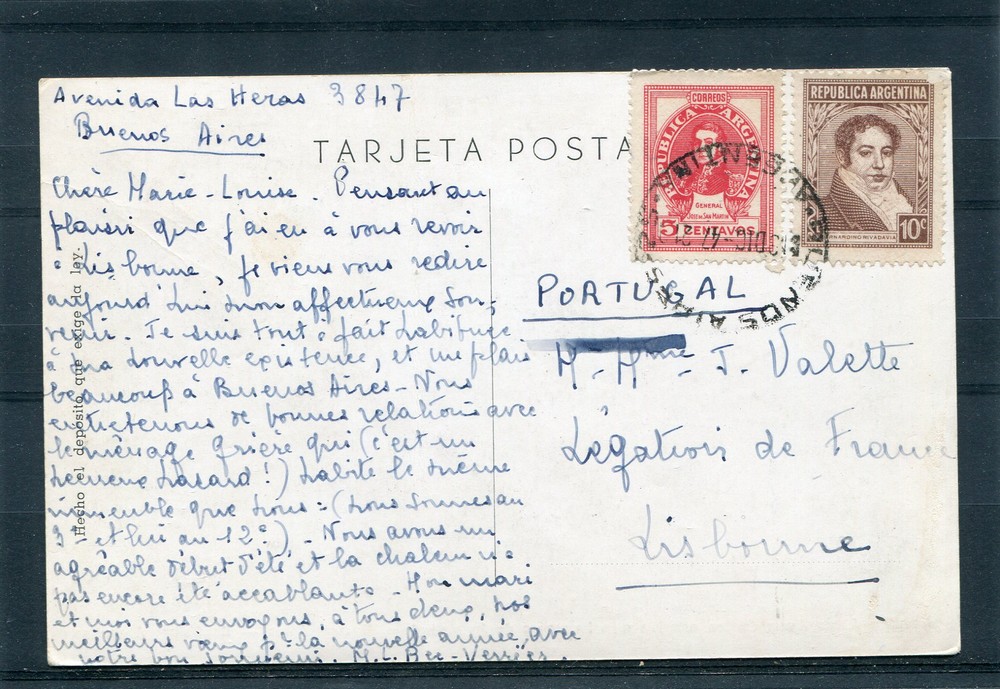 Avenida Las Heras 3847
Buenos Aires
TARJETA POSTA
Chère Marie-Louise. Pensant au
plaisir que j'ai eu à vous revoir
à Lisbonne, je viens vous redire
aujourd'hui mon affectueux sou-
venir. Je suis tout à fait habituée
à ma nouvelle existence, et me plais
beaucoup à Buenos Aires - Nous
entretenons de bonnes relations avec
le ménage Grière qui (c'est un
heureux hasard!) habite le même
immeuble que nous: (nous sommes au
3e et lui au 12e) - Nous avons un
agréable début d'été et la chaleur n'a
pas encore été accablante - Mon mari
et moi vous envoyons, à tous deux, nos
meilleurs vœux pr la nouvelle année, avec
notre bon souvenir. M.L. Bec-
Hecho el depósito que exige la ley.
CORREOS
REPUBLICA ARGENTINA
GENERAL
JOSE DE SAN MARTIN
5 CENTAVOS
REPUBLICA ARGENTINA
BERNARDINO RIVADAVIA
10c
BUENOS AIRES
ARGENTINA
DIC
PORTUGAL
M - Mme J. Valette
Légation de France
Lisbonne